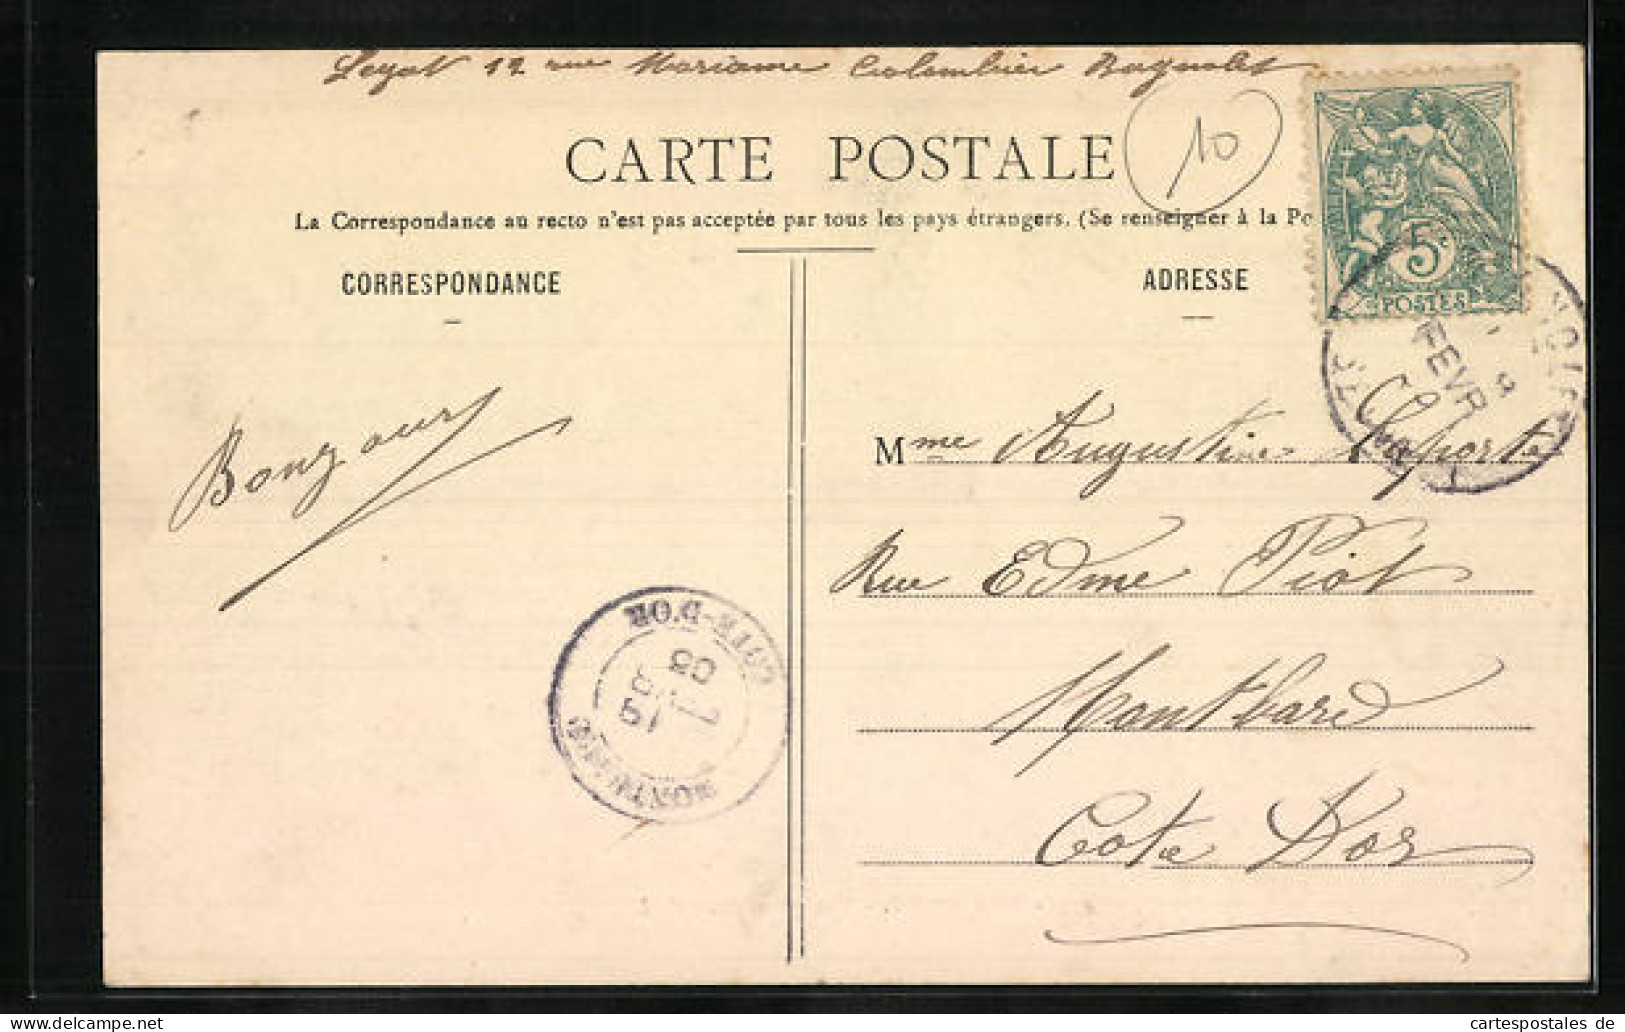 12 rue Mariame Colombier Bagnolet
CARTE POSTALE
10
La Correspondance au recto n'est pas acceptée par tous les pays étrangers. (Se renseigner à la Po
5c
POSTES
CORRESPONDANCE
ADRESSE
FEVR
Bonzours
Mme Augustine Laporte
Rue Edme Piot
Montbard
Cote D'or
COTE-D'OR
19
08
MONTBARD
cartespostales de